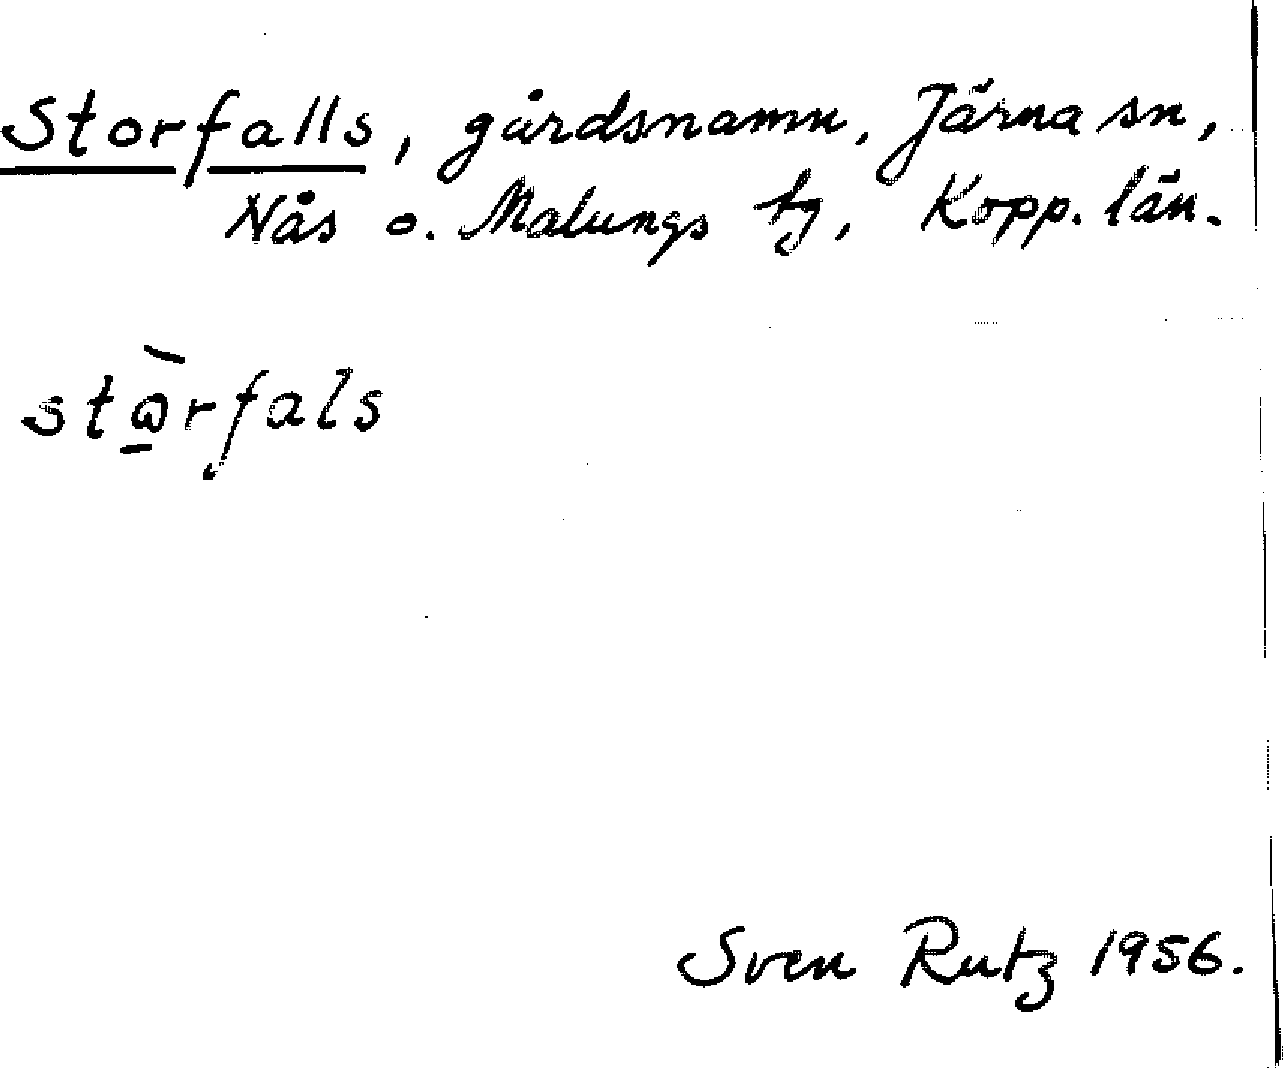 Storfalls, gårdsnamn, Järna sn,
Nås o. Malungs tg, Kopp. län.
stὼ̲rfals
Sven Rutz 1956.